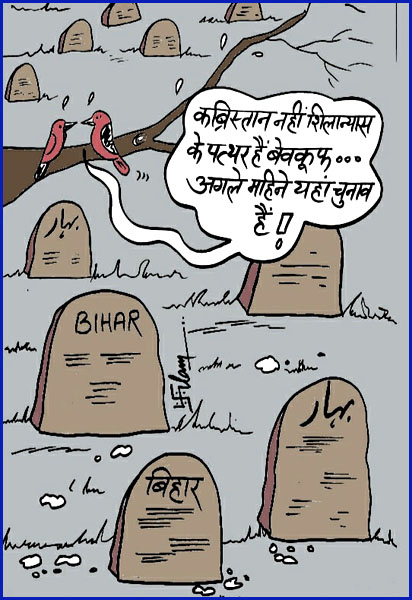 कब्रिस्तान नहीं शिलान्यास
के पत्थर हैं बेवकूफ...
अगले महिने यहां चुनाव
हैं!
بہار
BIHAR
بہار
बिहार